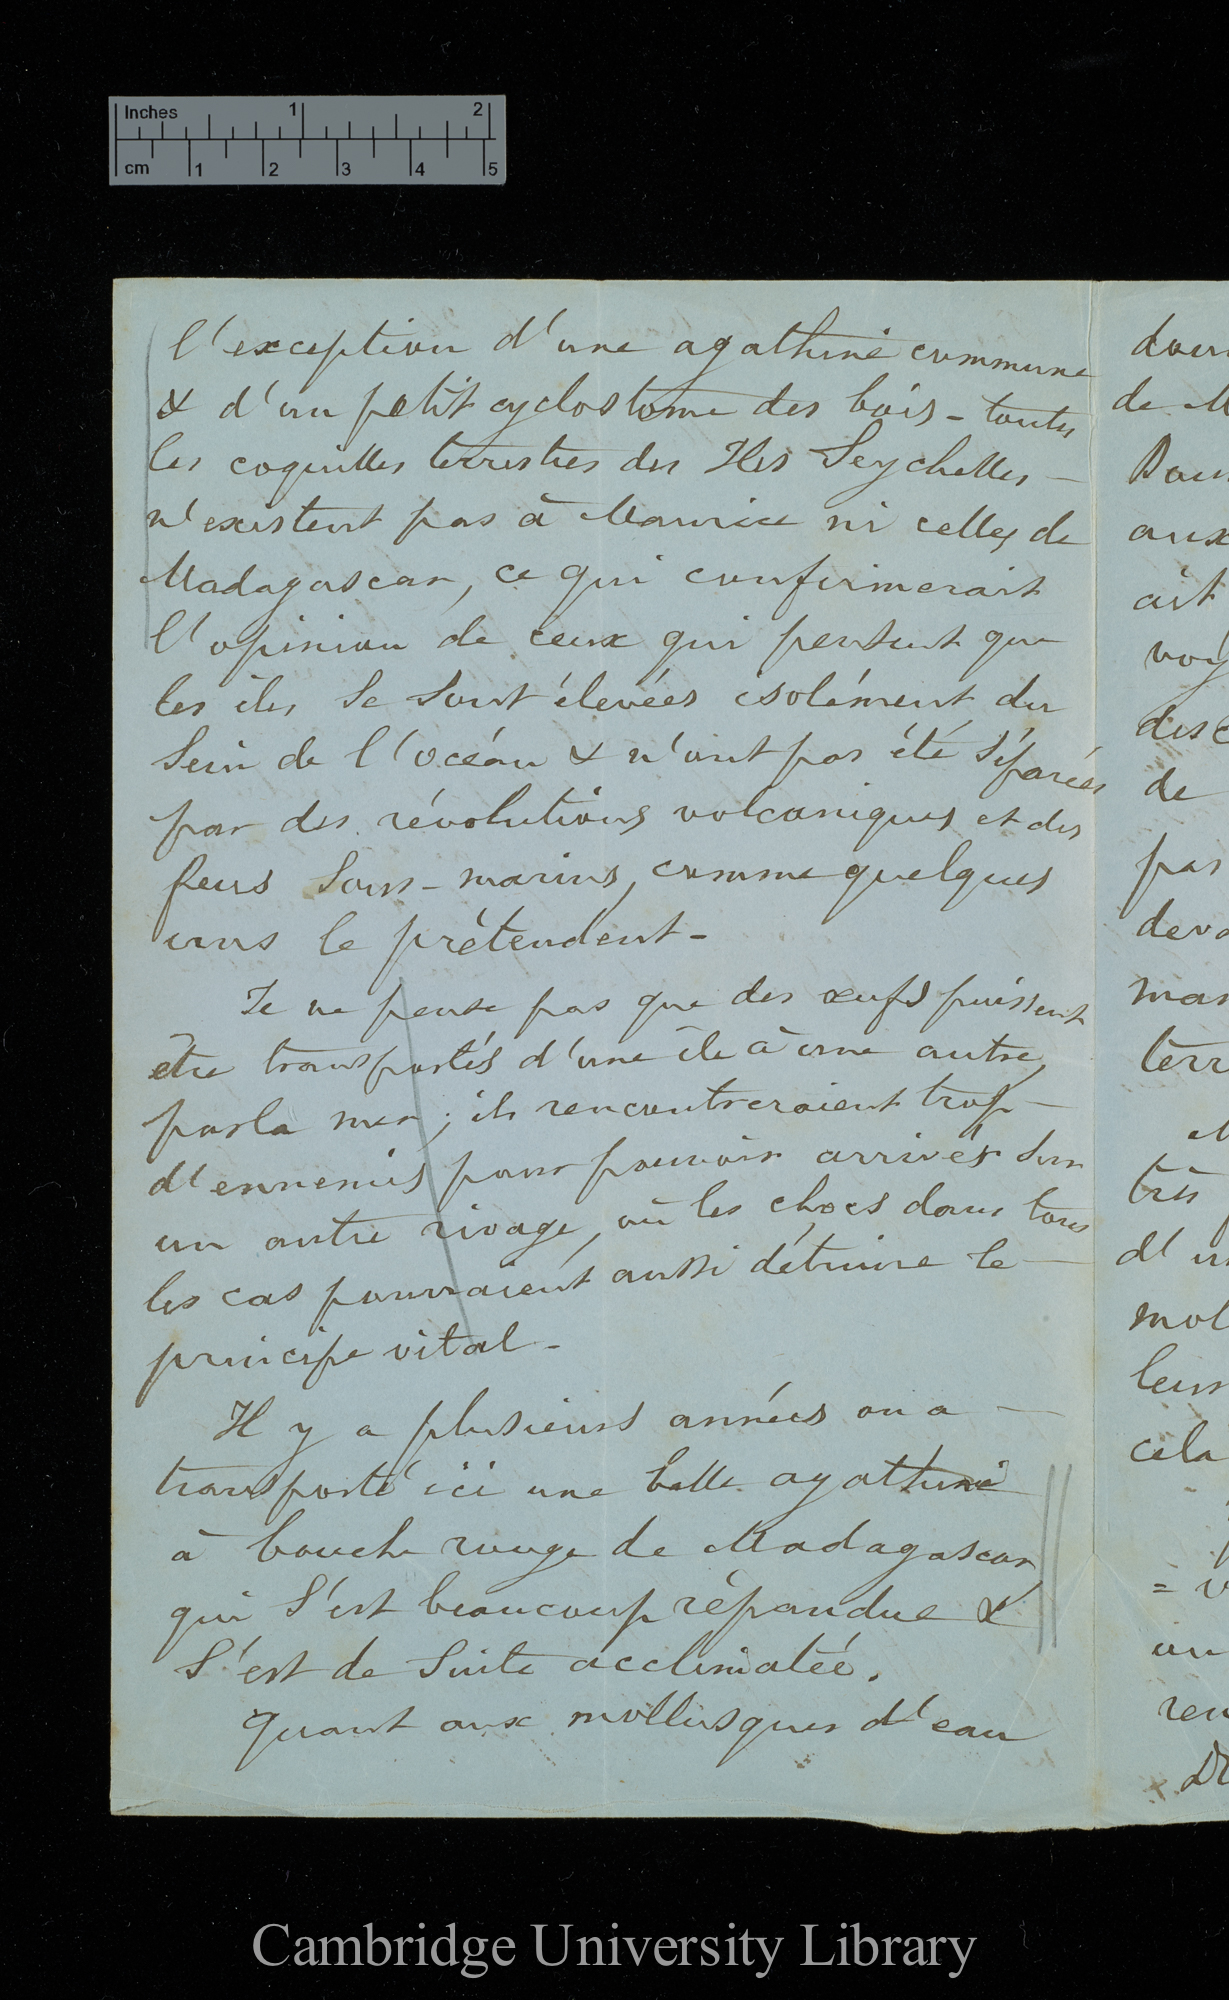 Inches 1 2
cm 1 2 3 4 5
l'exception d'une agathine commune
& d'un petit cyclostome des bois - toutes
les coquilles terrestres des Iles Seychelles -
n'existent pas à Maurice ni celles de
Madagascar, ce qui confirmerait
l'opinion de ceux qui pensent que
les îles se sont élevées isolément du
Sein de l'océan & n'ont pas été séparées
par des révolutions volcaniques et des
feux sous-marins, comme quelques
uns le prétendent -
Je ne pense pas que des œufs puissent
être transportés d'une île à une autre,
par la mer ; ils rencontreraient trop -
d'ennemis pour pouvoir arriver sur
un autre rivage, où les chocs dans tous
les cas pourraient aussi détruire le -
principe vital -
Il y a plusieurs années on a -
transporté ici une belle agathine
à bouche rouge de Madagascar
qui s'est beaucoup répandue &
s'est de suite acclimatée.
Quant aux mollusques d'eau
de M
aux
ait
voy
de
pas
terr
très
mol
cela
Cambridge University Library